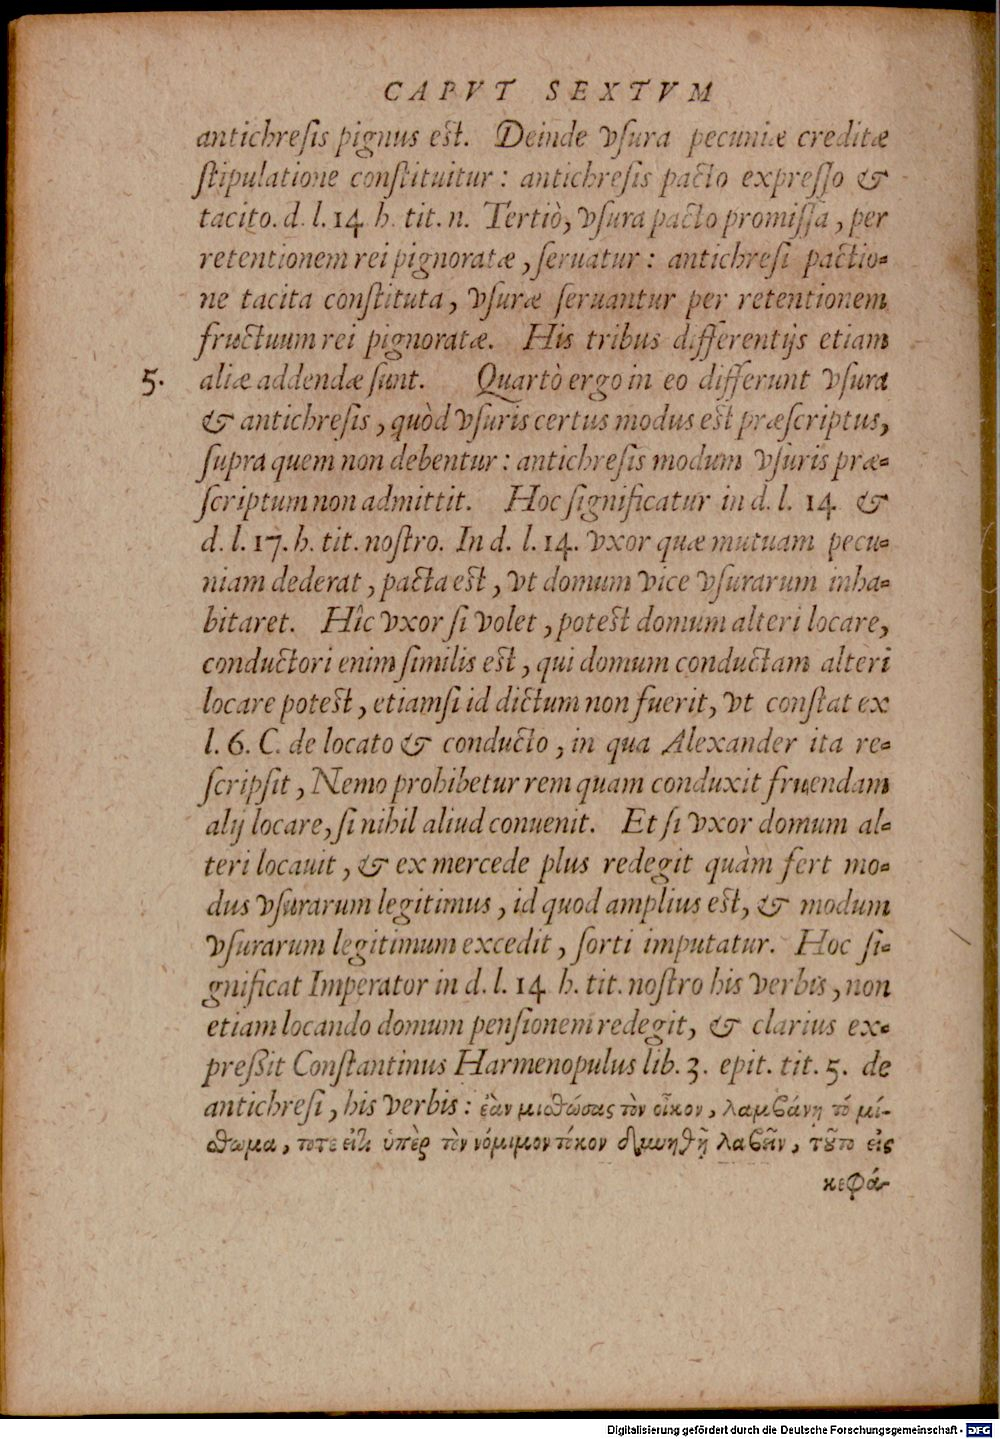 CAPVT SEXTVM
antichresis pignus est. Deinde vsura pecuniæ creditæ
stipulatione constituitur: antichresis pacto expresso &
tacito. d. l. 14 h. tit. n. Tertiò, vsura pacto promissa, per
retentionem rei pignoratæ, seruatur: antichresi pactio-
ne tacita constituta, vsuræ seruantur per retentionem
fructuum rei pignoratæ. His tribus differentijs etiam
5. aliæ addendæ sunt. Quartò ergo in eo differunt vsura
& antichresis, quòd vsuris certus modus est præscriptus,
supra quem non debentur: antichresis modum vsuris præ-
scriptum non admittit. Hoc significatur in d. l. 14 &
d. l. 17. h. tit. nostro. In d. l. 14. vxor quæ mutuam pecu-
niam dederat, pacta est, vt domum vice vsurarum inha-
bitaret. Hîc vxor si volet, potest domum alteri locare,
conductori enim similis est, qui domum conductam alteri
locare potest, etiamsi id dictum non fuerit, vt constat ex
l. 6. C. de locato & conducto, in qua Alexander ita re-
scripsit, Nemo prohibetur rem quam conduxit fruendam
alij locare, si nihil aliud conuenit. Et si vxor domum al-
teri locauit, & ex mercede plus redegit quàm fert mo-
dus vsurarum legitimus, id quod amplius est, & modum
vsurarum legitimum excedit, sorti imputatur. Hoc si-
gnificat Imperator in d. l. 14 h. tit. nostro his verbis, non
etiam locando domum pensionem redegit, & clarius ex-
pressit Constantinus Harmenopulus lib. 3. epit. tit. 5. de
antichresi, his verbis: ἐὰν μισθώσας τὸν οἶκον, λαμβάνῃ τό μί-
σθωμα, ὑπὲρ τὸν νόμιμον τόκον λαβεῖν, τοῦτο εἰς
κεφά-
Digitalisierung gefördert durch die Deutsche Forschungsgemeinschaft - DFG